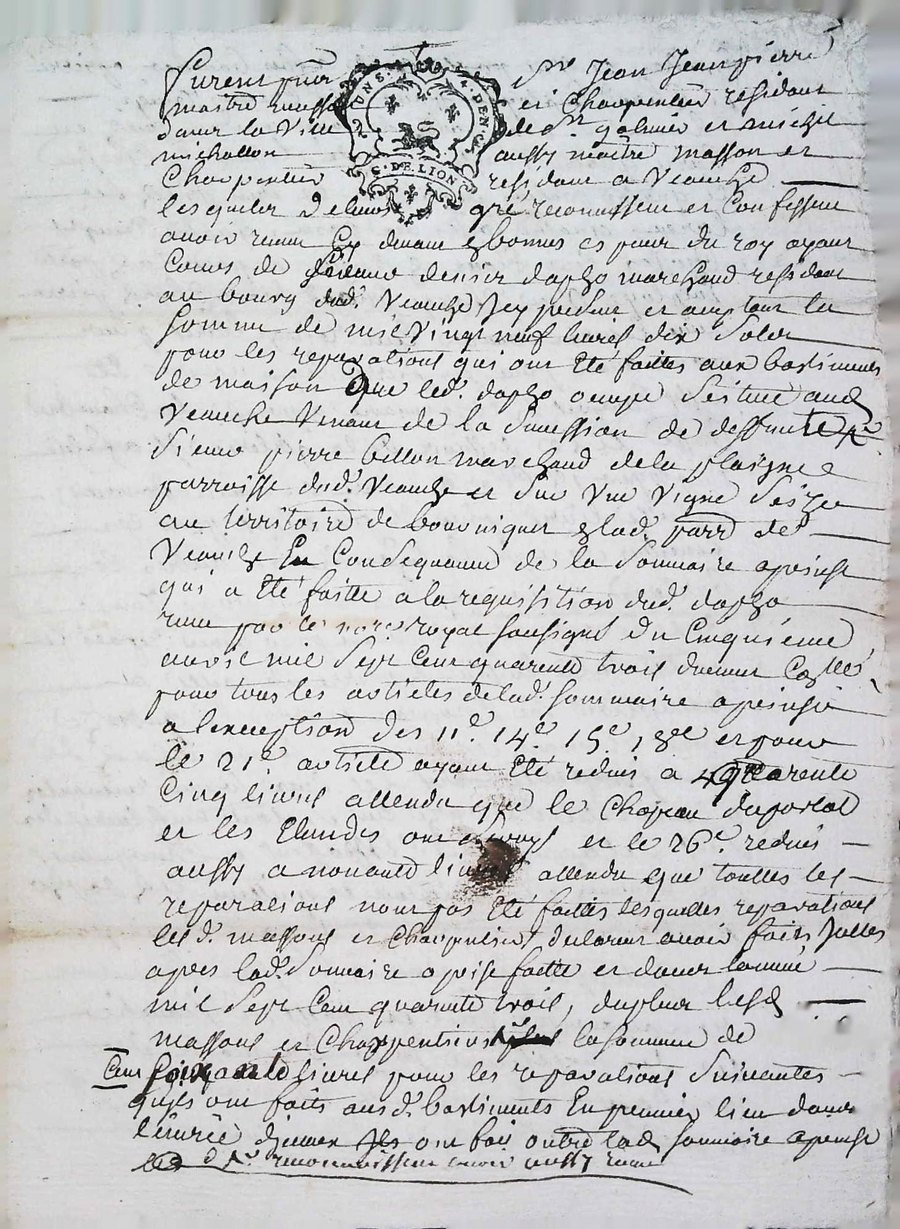 Furent pnts Sr Jean Jean pierre
maitre masson et Charpentier résidant
dans la Ville de St galmier et
michallon aussy maitre masson et
Charpentier residant a Veauche
lesquels de leurs gré reconnoissent et Confessent
avoir receu Cy devant Ebonnes espece du roy ayant
Cours de denier marchand residant
au bourg dud. Veauche pnt et acceptant la
somme de mil vingt neuf livres dix solds
pour les reparations qui ont Eté faittes aux bastiments
de maison que led. occupe scitué aud
Veauche Venant de la Sucession de deffunt
Sieur pierre billon marchand de la plaigne
parroisse dud. Veauche et sur Une Vigne
au territoire de Elad. parr de
Veauche En Consequance de la Sommaire aprinse
qui a Eté faitte a la requisition dud.
receu par le nore royal soussigné du Cinquieme
avril mil Sept Cent quarente trois
pour tous les articles de lad. sommaire aprinse
a lexception des 11e. 14e. 15e. 18e et pour
le 21e. article ayant Eté reduit a quarente
Cinq livres attendu que le Chapeau du portal
et les ont et le 26e. reduit
aussy a nonante livres attendu que touttes les
reparations nont pas Eté faittes lesquelles reparations
lesd. massons et Charpentiers declarent avoir faits
apres lad. Sommaire aprise faitte et dans lannée
mil Sept Cent quarente trois, de plus lesd
massons et Charpentiers la somme de
Cent soixante livres pour les reparations Suivantes
quils ont faits ausd. bastiments En premier lieu dans
ont fait outre lad Sommaire aprinse
reconnoissent avoir aussy receu
UNS. 4. DEN.
G. DE LION